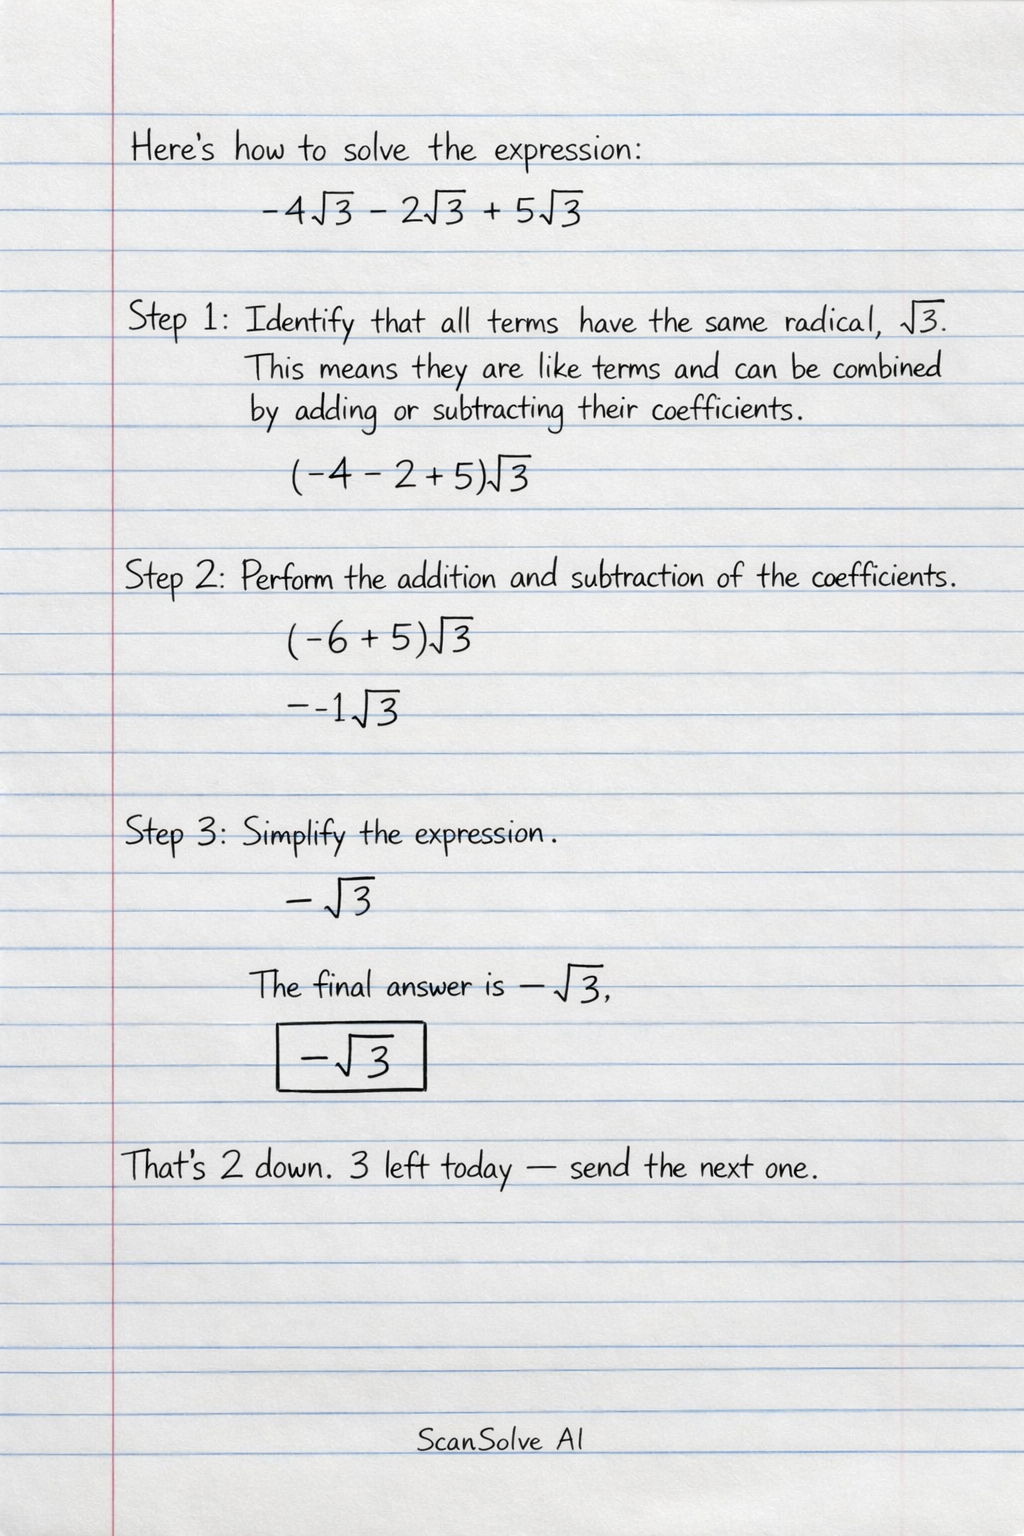 Here's how to solve the expression:
-4√3 - 2√3 + 5√3
Step 1: Identify that all terms have the same radical, √3.
This means they are like terms and can be combined
by adding or subtracting their coefficients.
(-4 - 2 + 5)√3
Step 2: Perform the addition and subtraction of the coefficients.
(-6 + 5)√3
--1√3
Step 3: Simplify the expression.
-√3
The final answer is -√3,
-√3
That's 2 down. 3 left today — send the next one.
ScanSolve AI